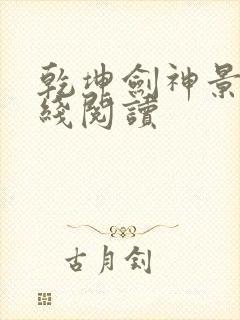 乾坤劍神景
綫閱讀
古月釗